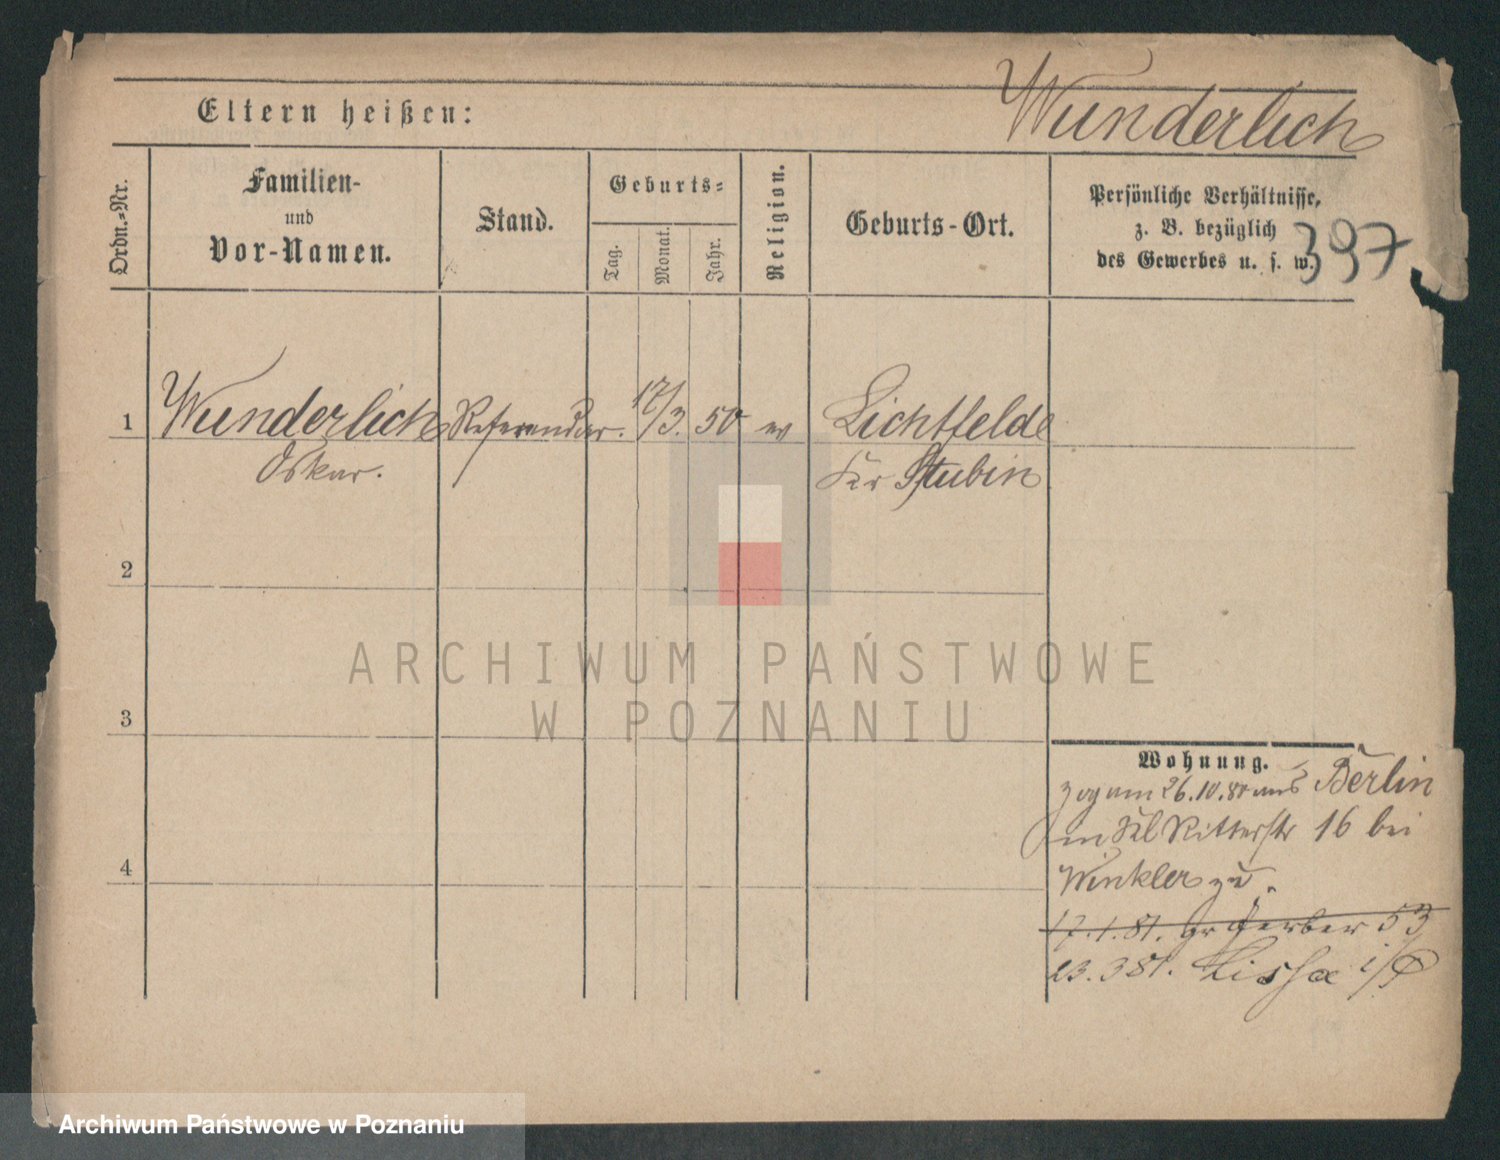 Wunderlich
Eltern heißen:
Ordn.-Nr.
Familien-
und
Vor-Namen.
Stand.
Geburts-
Tag.
Monat.
Jahr.
Religion.
Geburts-Ort.
Persönliche Verhältnisse,
z. B. bezüglich
des Gewerbes u. s. w.
397
1 Wunderlich Referendar. 17/3. 50 ev Lichtfelde
Oskar. Kr Stubin
2
3
4
Wohnung.
zog am 26.10.80 aus Berlin
Ritterstr 16 bei
Winkler zu.
17.1.81. Gr Gerber 53
23.3 81. Lissa i/P
ARCHIWUM PAŃSTWOWE
W POZNANIU
Archiwum Państwowe w Poznaniu